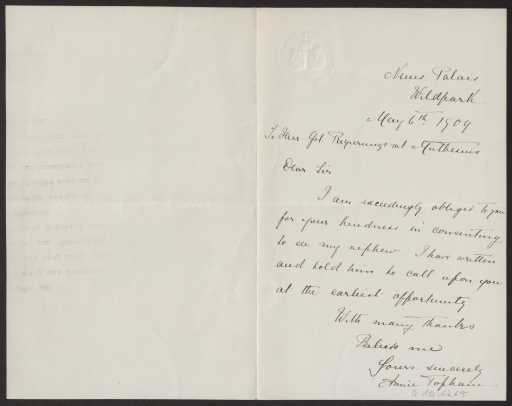 Neues Palais
Wildpark
May 6th 1909
To Herr Geh Regierungs rat Muthesius
Dear Sir
I am exceedingly obliged to you
for your kindness in consenting
to see my nephew I have written
and told him to call upon you
at the earliest opportunity
With many thanks
Believe me
Yours sincerely
Annie Topham